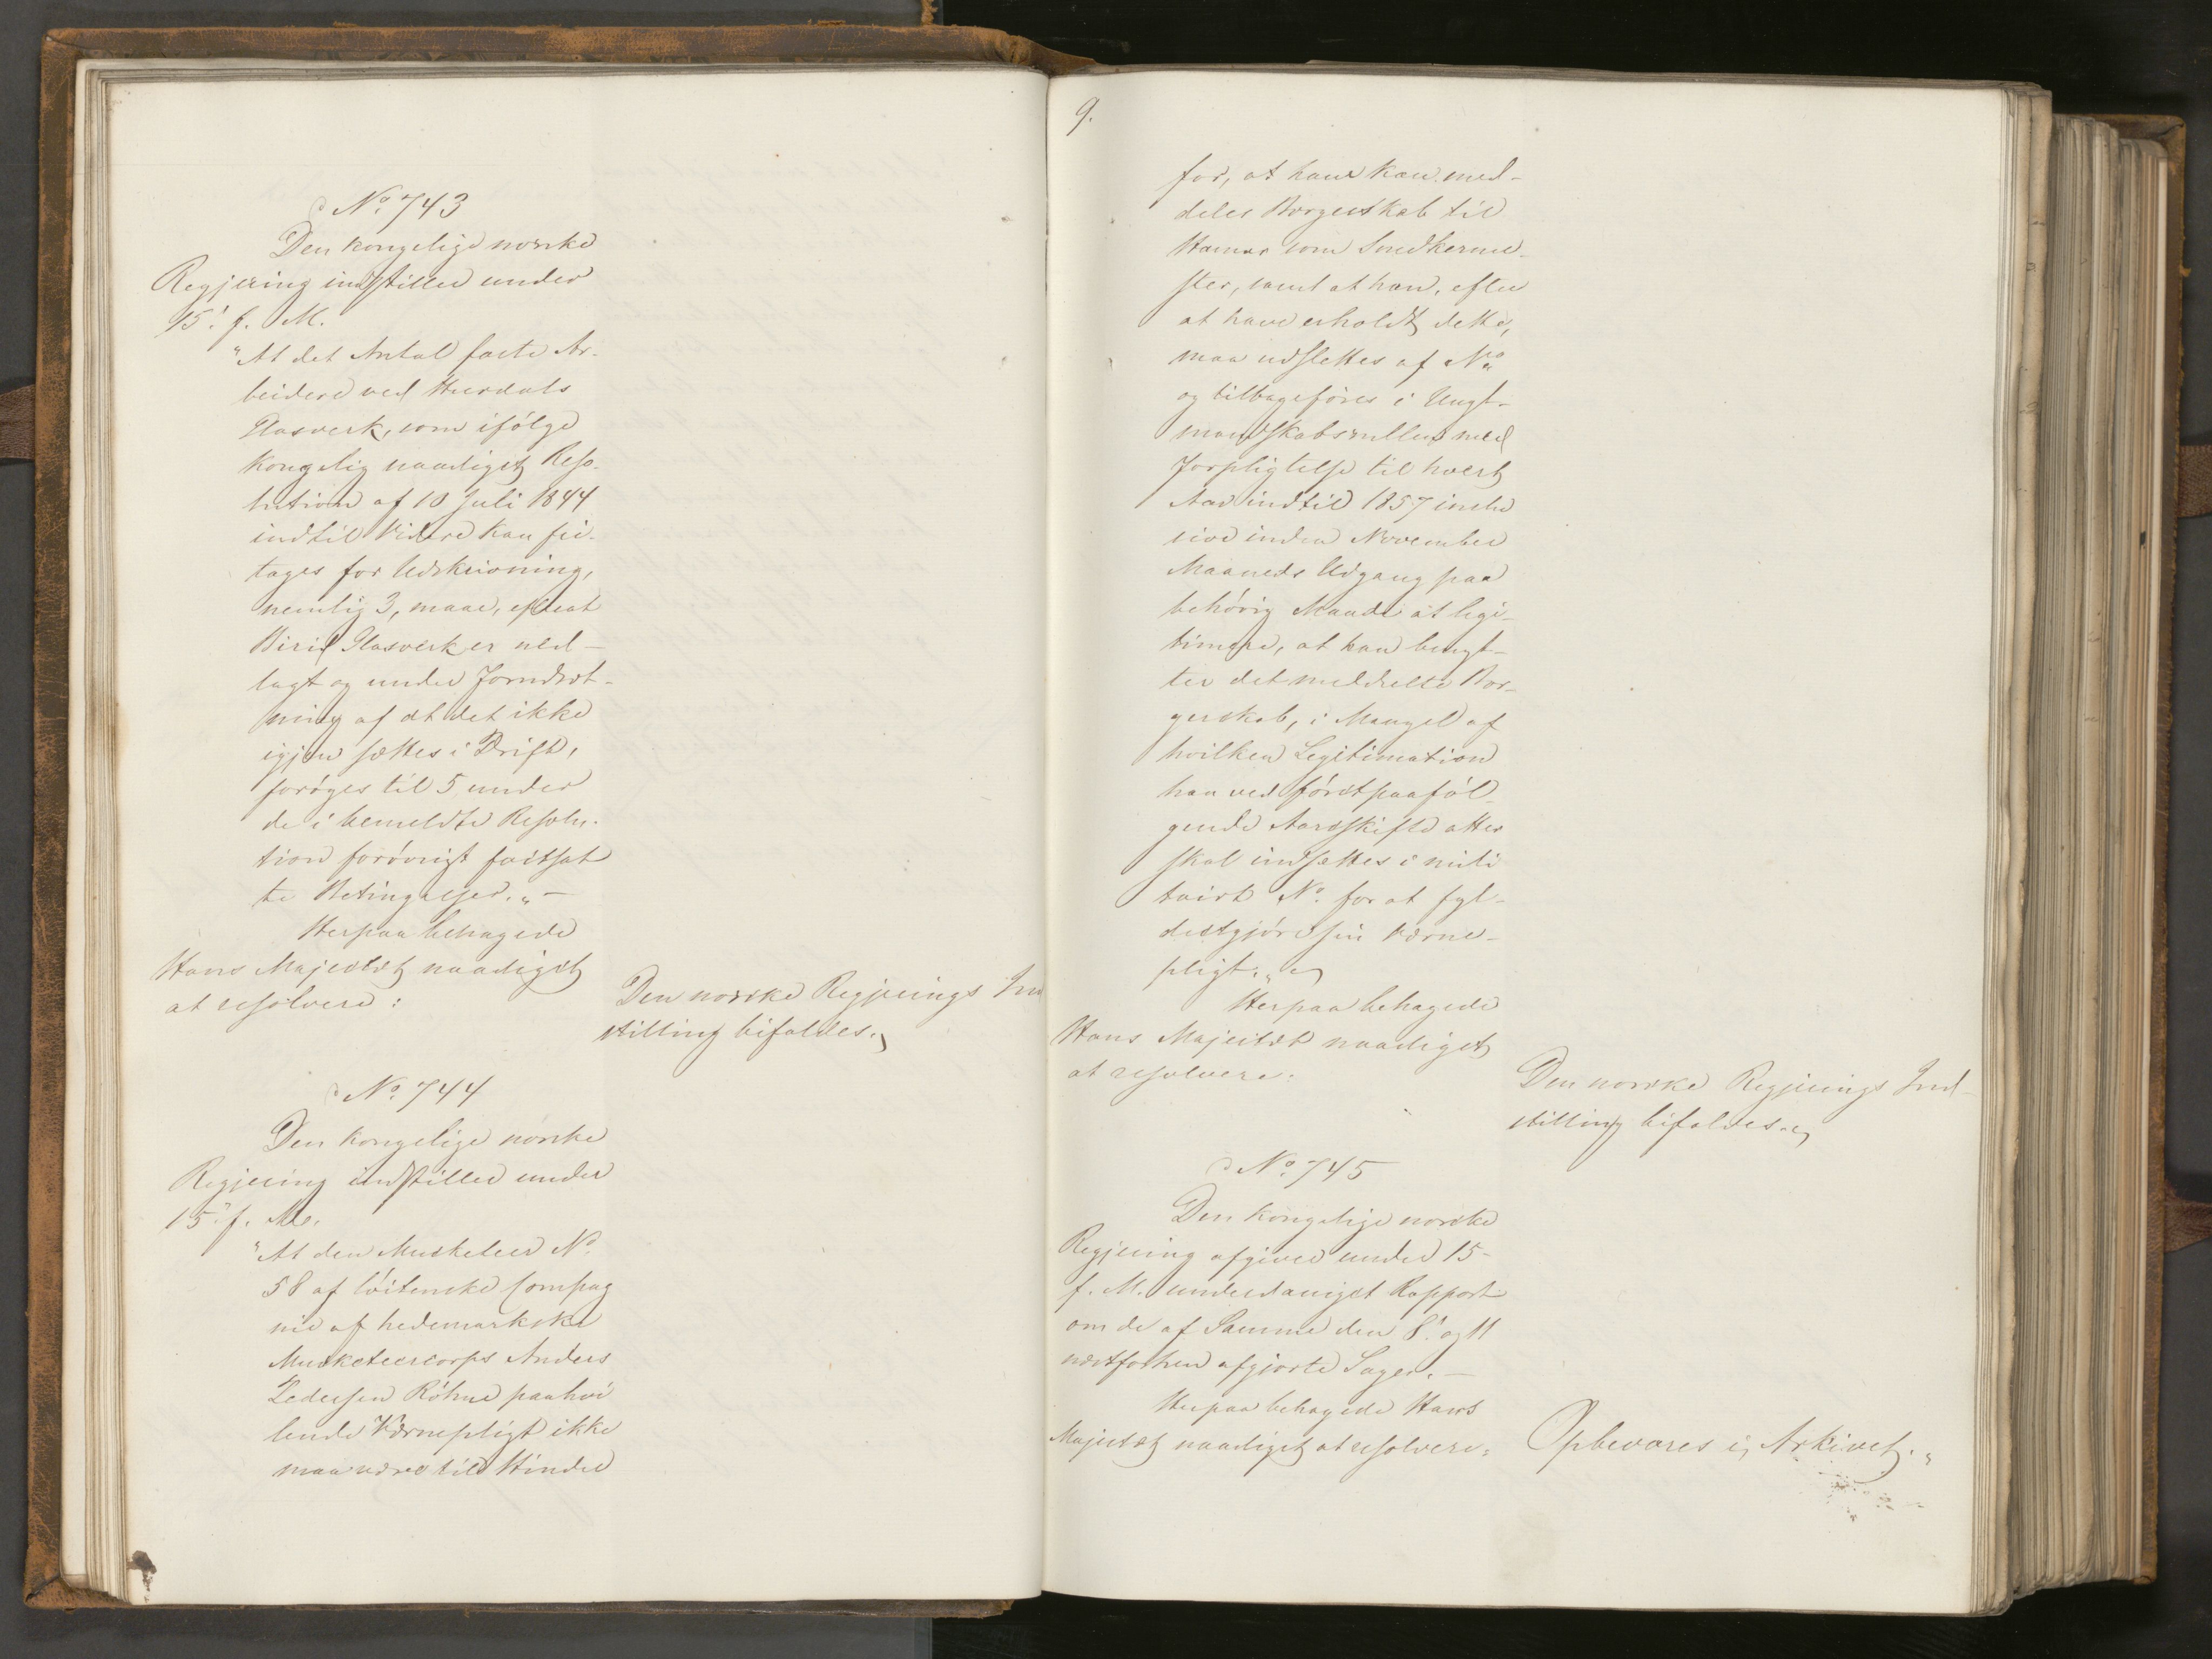 No. 743
Den kongelige norske
Regjering indstiller under
15. f. M.
"At det Antal faste Ar-
beidere ved Hurdals
Glasverk, som ifölge
kongelig naadigst Reso-
lution af 10 Juli 1844
indtil Videre kan fri-
tages for Udskrivning,
nemlig 3, maae, efterat
Birid Glasverk er ned-
lagt og under Forudsæt-
ning af at det ikke
igjen sættes i Drift,
foröges til 5 under
de i bemeldte Resolu-
tion forövrigt fastsat-
te Betingelser."-
Herpaa behagede
Hans Majestæt naadigst
at resolvere:
Den norske Regjerings Ind
stilling bifaldes.
No. 744
Den kongelige norske
Regjering indstiller under
15. f. M.
"At den Musketeer No.
58 af löitenske Compag
nie af hedemarkske
Musketeercorps Anders
Pedersen Röhne paahvi
lende Værnepligt ikke
maa være til Hinder
9.
for, at han kan med-
deles Borgerskab til
Hamar som Snedkerme-
ster, samt at han, efter
at have erholdt dette,
maa udslettes af No.
og tilbageföres i Ungt-
mandskabsrullen med
Forpligtelse til hvert
Aar indtil 1857 inclu
sive inden November
Maaneds Udgang paa
behörig Maade at legi-
timere, at han benyt-
ter det meddeelte Bor-
gerskab, i Mangel af
hvilken Legitimation
han ved förstpaaföl-
gende Aarsskifte atter
skal indsættes i mili
tairt No. for at fyl-
destgjöre sin Værne-
pligt."
Herpaa behagede
Hans Majestæt naadigst
at resolvere:
Den norske Regjerings Ind-
stilling bifaldes.
No. 745
Den kongelige norske
Regjering afgiver under 15-
f. M. underdanigst Rapport
om de af Samme den 8. og 11
næstforhen afgjorte Sager.-
Herpaa behagede Hans
Majestæt naadigst at resolvere:
Opbevares i Arkivet.